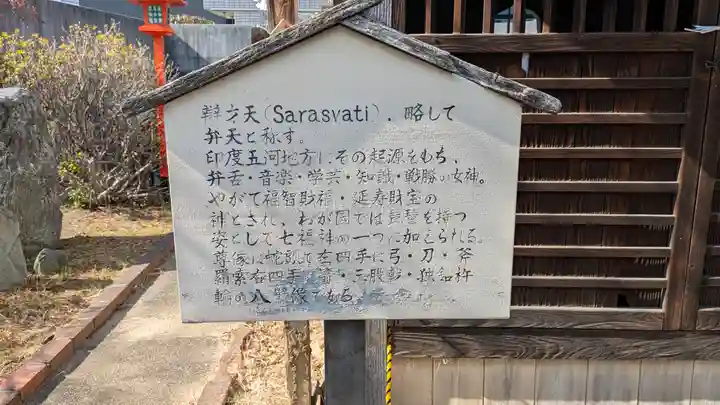 辯才天(Sarasvati). 略して
弁天と称す。
印度五河地方にその起源をもち、
弁舌・音楽・学芸・知識・戦勝の女神。
やがて福智財福・延寿財宝の
神とされ、わが国では琵琶を持つ
姿として七福神の一つに加えられる。
尊像は蛇冠で左四手に弓・刀・斧
羂索右四手に箭・三股戟・独鈷杵
輪の八臂像である